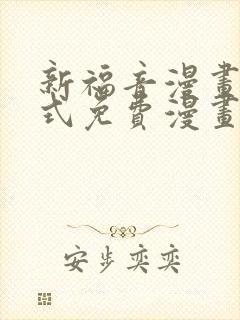 新福音漫畫
式免費漫畫
安步奕奕